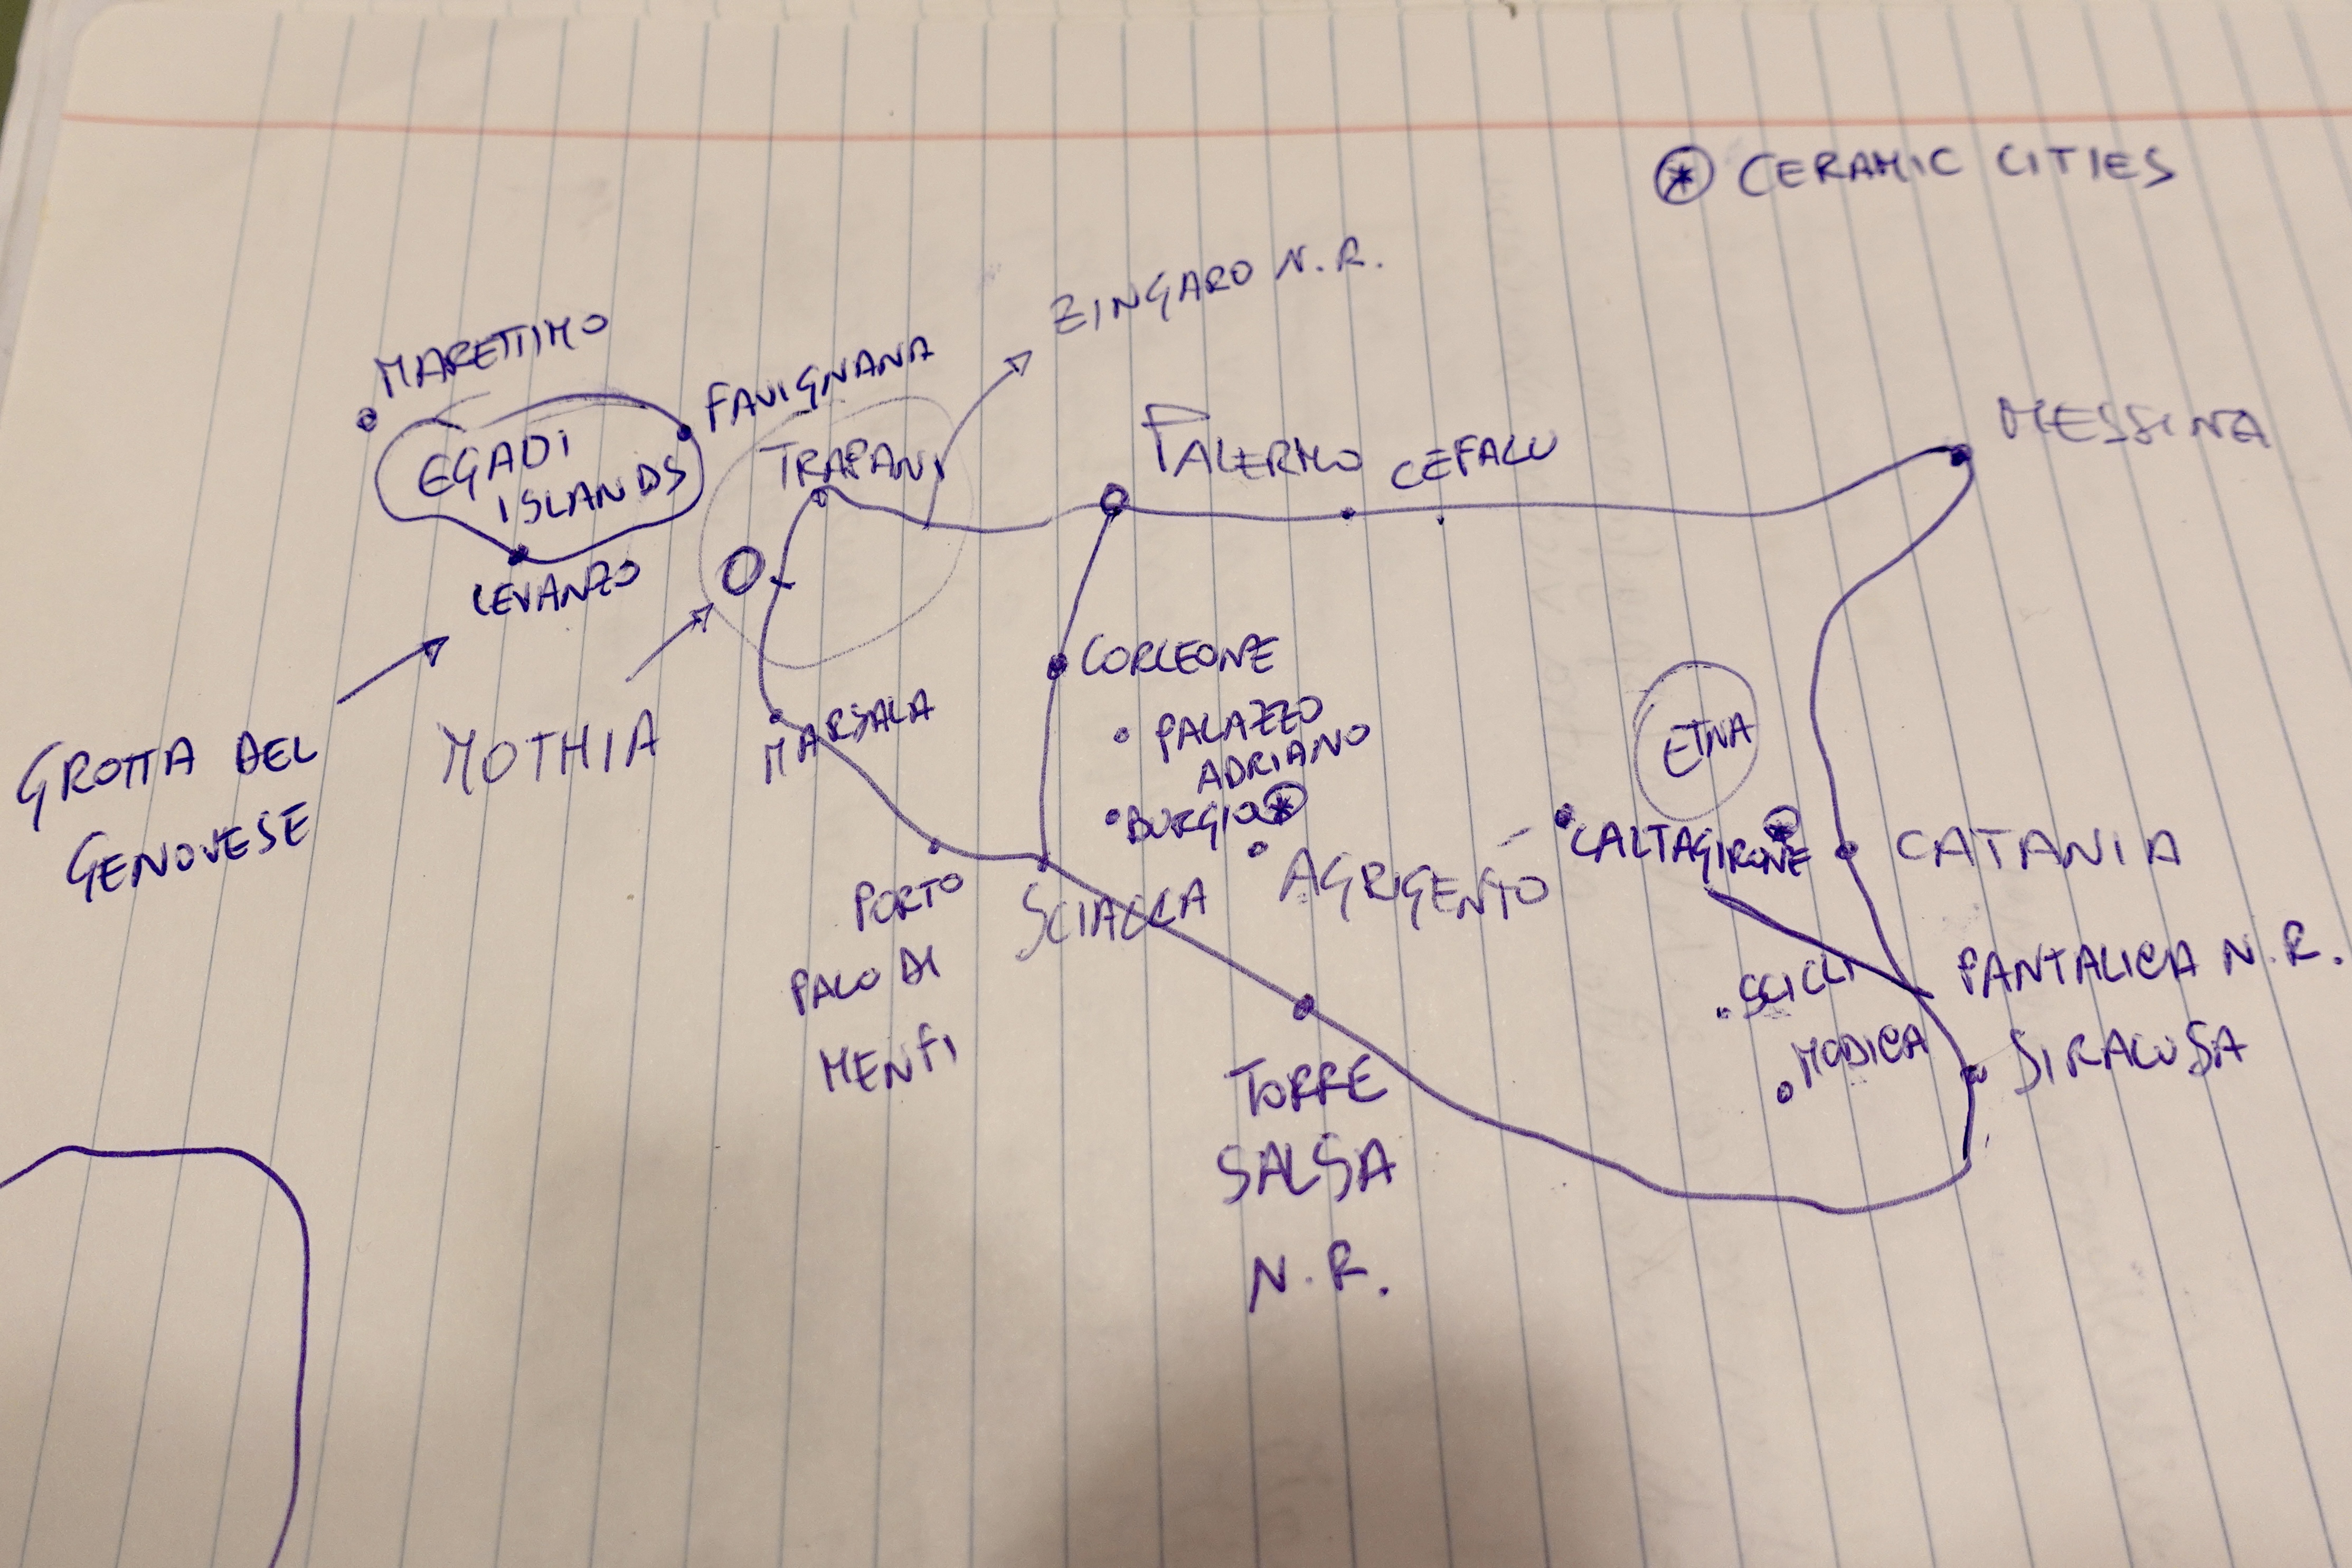 CERAMIC CITIES
ZINGARO N.R.
MARETTIMO
FAVIGNANA
EGADI
ISLANDS
LEVANZO
TRAPANI
PALERMO
CEFALU
MESSINA
GROTTA DEL
GENOVESE
MOTHIA
MARSALA
CORLEONE
PALAZZO
ADRIANO
BURGIO
ETNA
CALTAGIRONE
CATANIA
PORTO
PALO DI
MENFI
SCIACCA
AGRIGENTO
SCICLI
PANTALICA N.R.
MODICA
SIRACUSA
TORRE
SALSA
N.R.